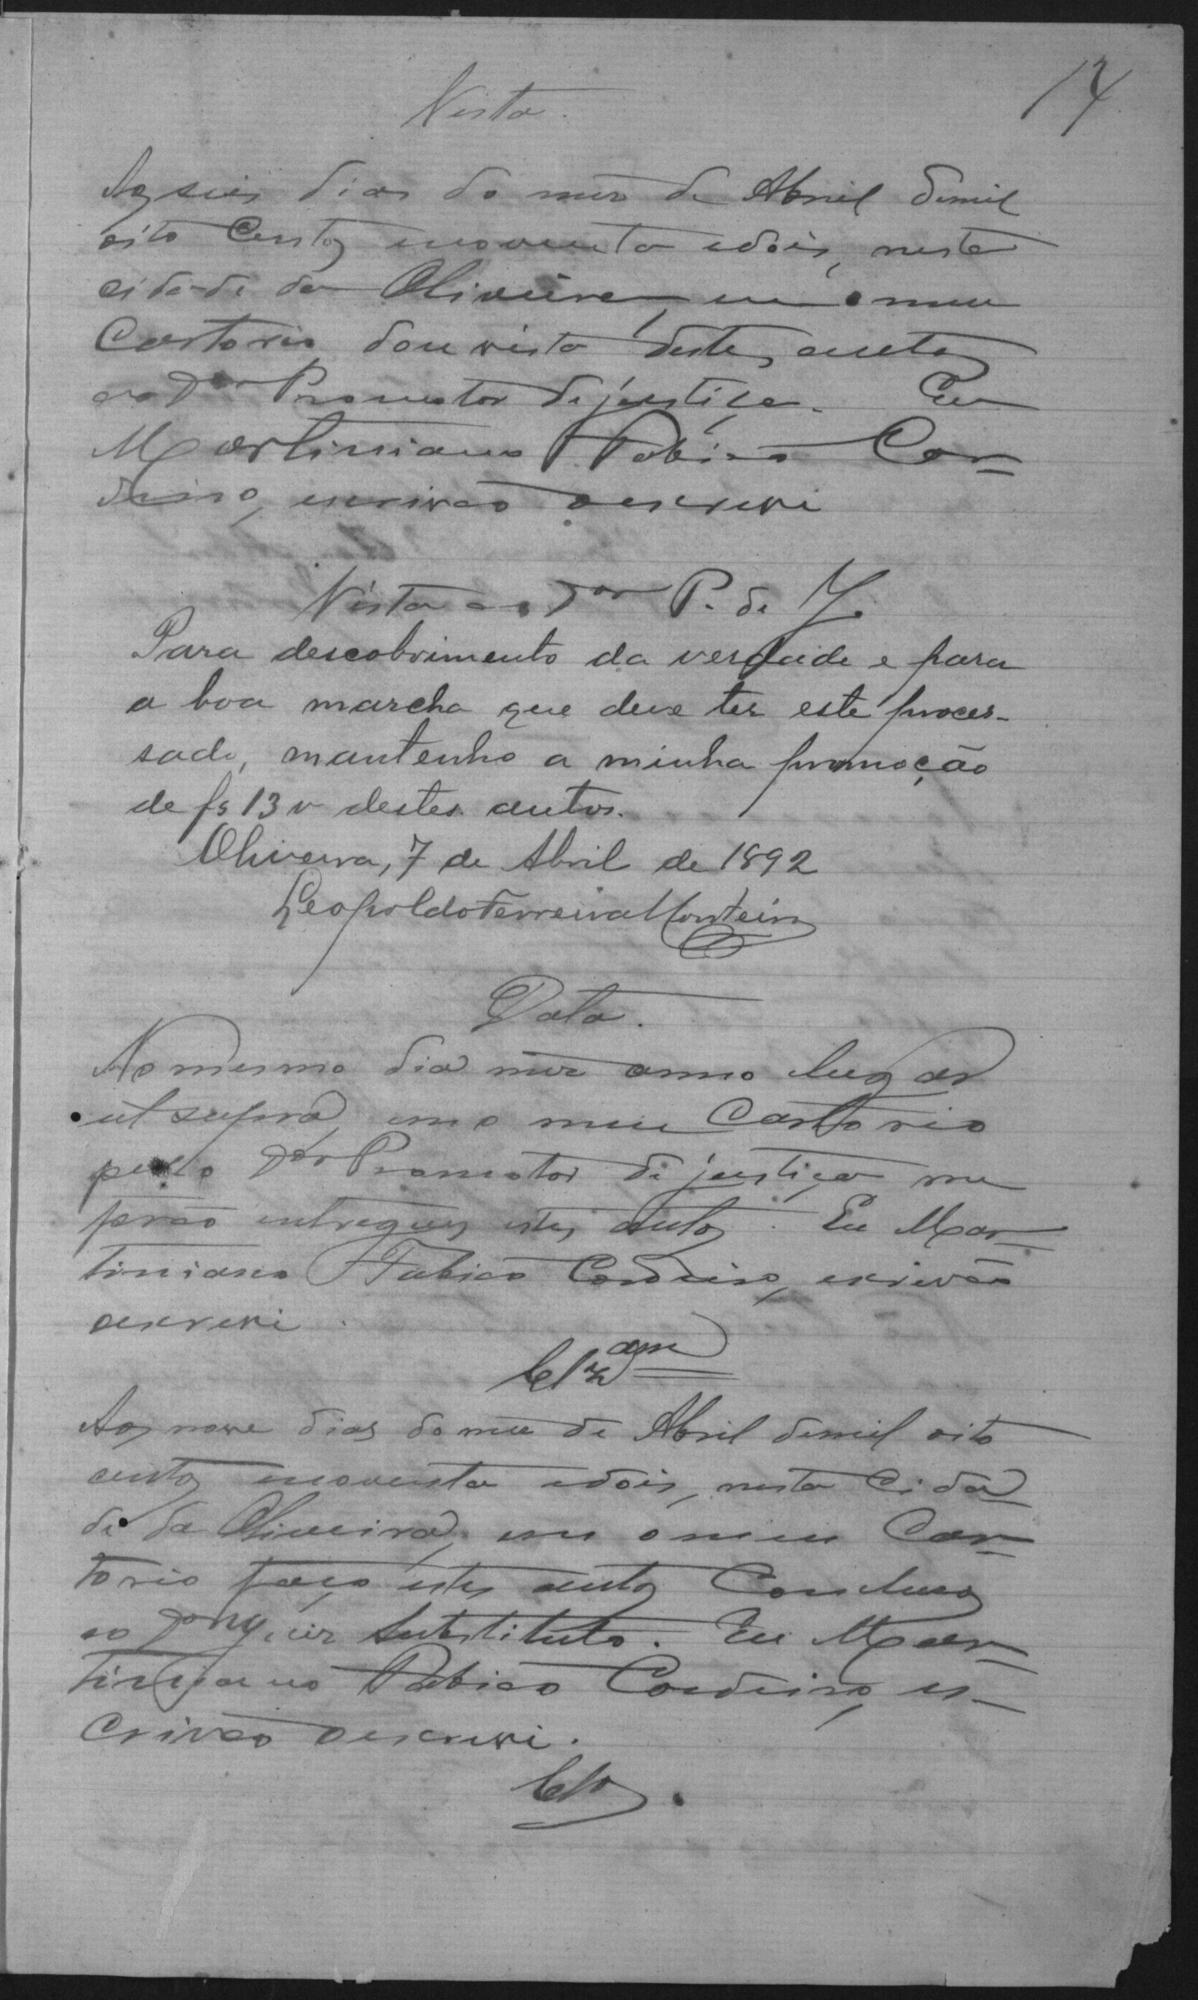 14
Vista.
Aos seis dias do mez de Abril demil
oito Centos enoventa edois, nesta
cidade da Oliveira, em o meu
Cartorio, dou vista destes autos
ao Dor Promotor dejustiça. Eu
Martiniano Fabião Cor=
deiro, escrivão oescrevi
Vista ao Dor P. de J.
Para descobrimento da verdade e para
a boa marcha que deve ter este proces-
sado, mantenho a minha promoção
de fs 13 v destes autos.
Oliveira, 7 de Abril de 1892
Leopoldo Ferreira Monteiro
Data.
No mesmo dia mez anno lugar
ut supra, em o meu Cartorio
pello Dor Promotor de justiça me
forão entregues estes autos. Eu Mar=
tiniano Fabião Cordeiro, escrivão
oescrevi.
Clzam
Aos nove dias do mez de Abril demil oito
centos enoventa edois, nesta Cida
de da Oliveira, em o meu Car=
torio faço estes autos Concluzos
ao Dor Juiz Substituto. Eu Mar=
tiniano Fabião Cordeiro, es=
crivão oescrevi.
Clos.